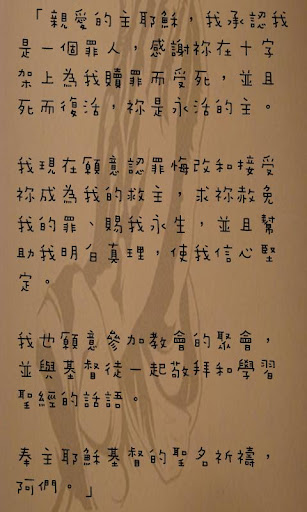 「親愛的主耶穌，我承認我
是一個罪人，感謝祢在十字
架上為我贖罪而受死，並且
死而復活，祢是永活的主。
我現在願意認罪悔改和接受
祢成為我的救主，求祢赦免
我的罪、賜我永生，並且幫
助我明白真理，使我信心堅
定。
我也願意參加教會的聚會，
並與基督徒一起敬拜和學習
聖經的話語。
奉主耶穌基督的聖名祈禱，
阿們。」